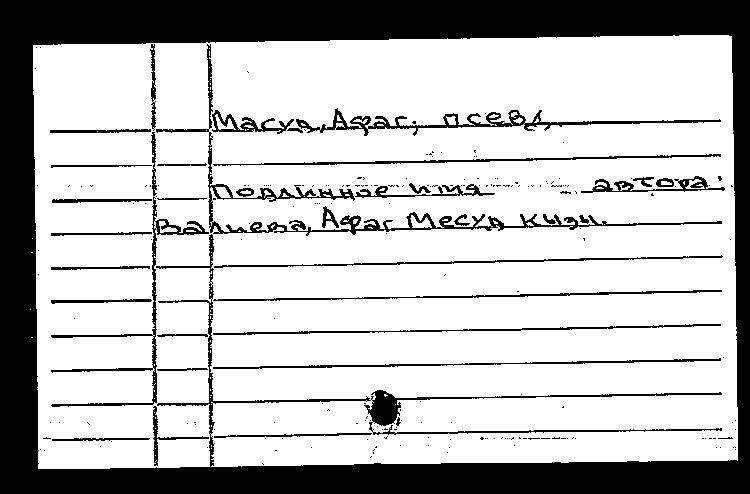 Масуд, Афаг, псевд.
Подлинное имя автора:
Валиева, Афаг Месуд кызы.